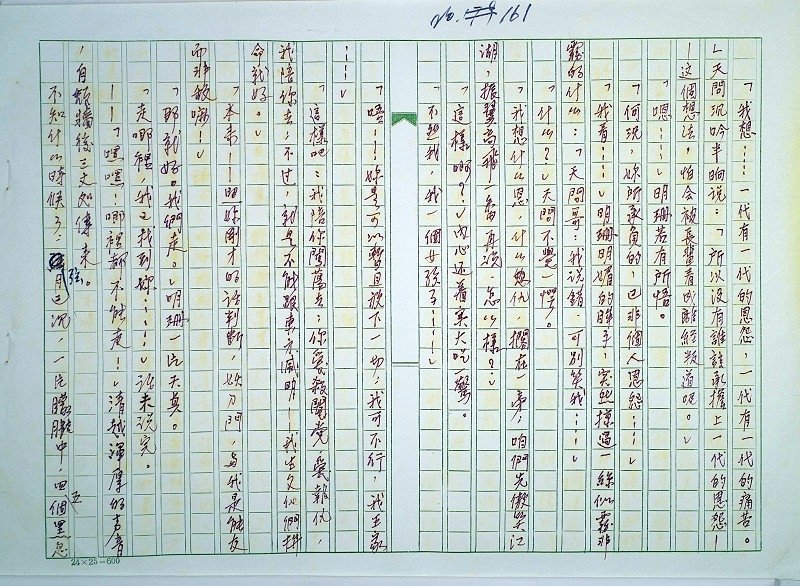 No. 161
「我想……一代有一代的恩怨，一代有一代的痛苦。
」天問沉吟半晌说：「所以没有誰該承擔上一代的恩怨—
—这個想法，怕会被長輩看成離經叛道吧。」
「嗯……」明珊若有所悟。
「何況，妳所承負的，已非個人恩怨……」
「我看……」明珊明媚的眸子，突然掠過一絲似霧非
霧的什么：「天問哥：我说錯，可別笑我……」
「什么？」天問不覺一愕。
「我想什么恩，什么怨仇，擱在一旁，咱們先傲笑江
湖，振翼高飛一番再说，怎么樣？」
「這樣啊？」内心述着実大吃一驚。
「不知我，我一個女孩子……」
「唔……妳是可以暫且抛下一切，我可不行，我主家
……」
「這樣吧：我陪你闖蕩去：你要殺閹党，要報仇，
我陪你去，不过，就是不能跟東方滅明——我出父他們拼
命就好。」
「本来——照妳剛才的话判断，妖刀門，与我是敵友
而非敵嘛！」
「那就好。我們走。」明珊一片天真。
「走哪裡，我也找到妳……」话未说完。
——「嘿嘿：哪裡都不能走！」清越渾厚的声音
，自頹牆後三丈処傳来。
不知什么時候了：弦月已沉，一片朦朧中，五個黑忽
24×25=600